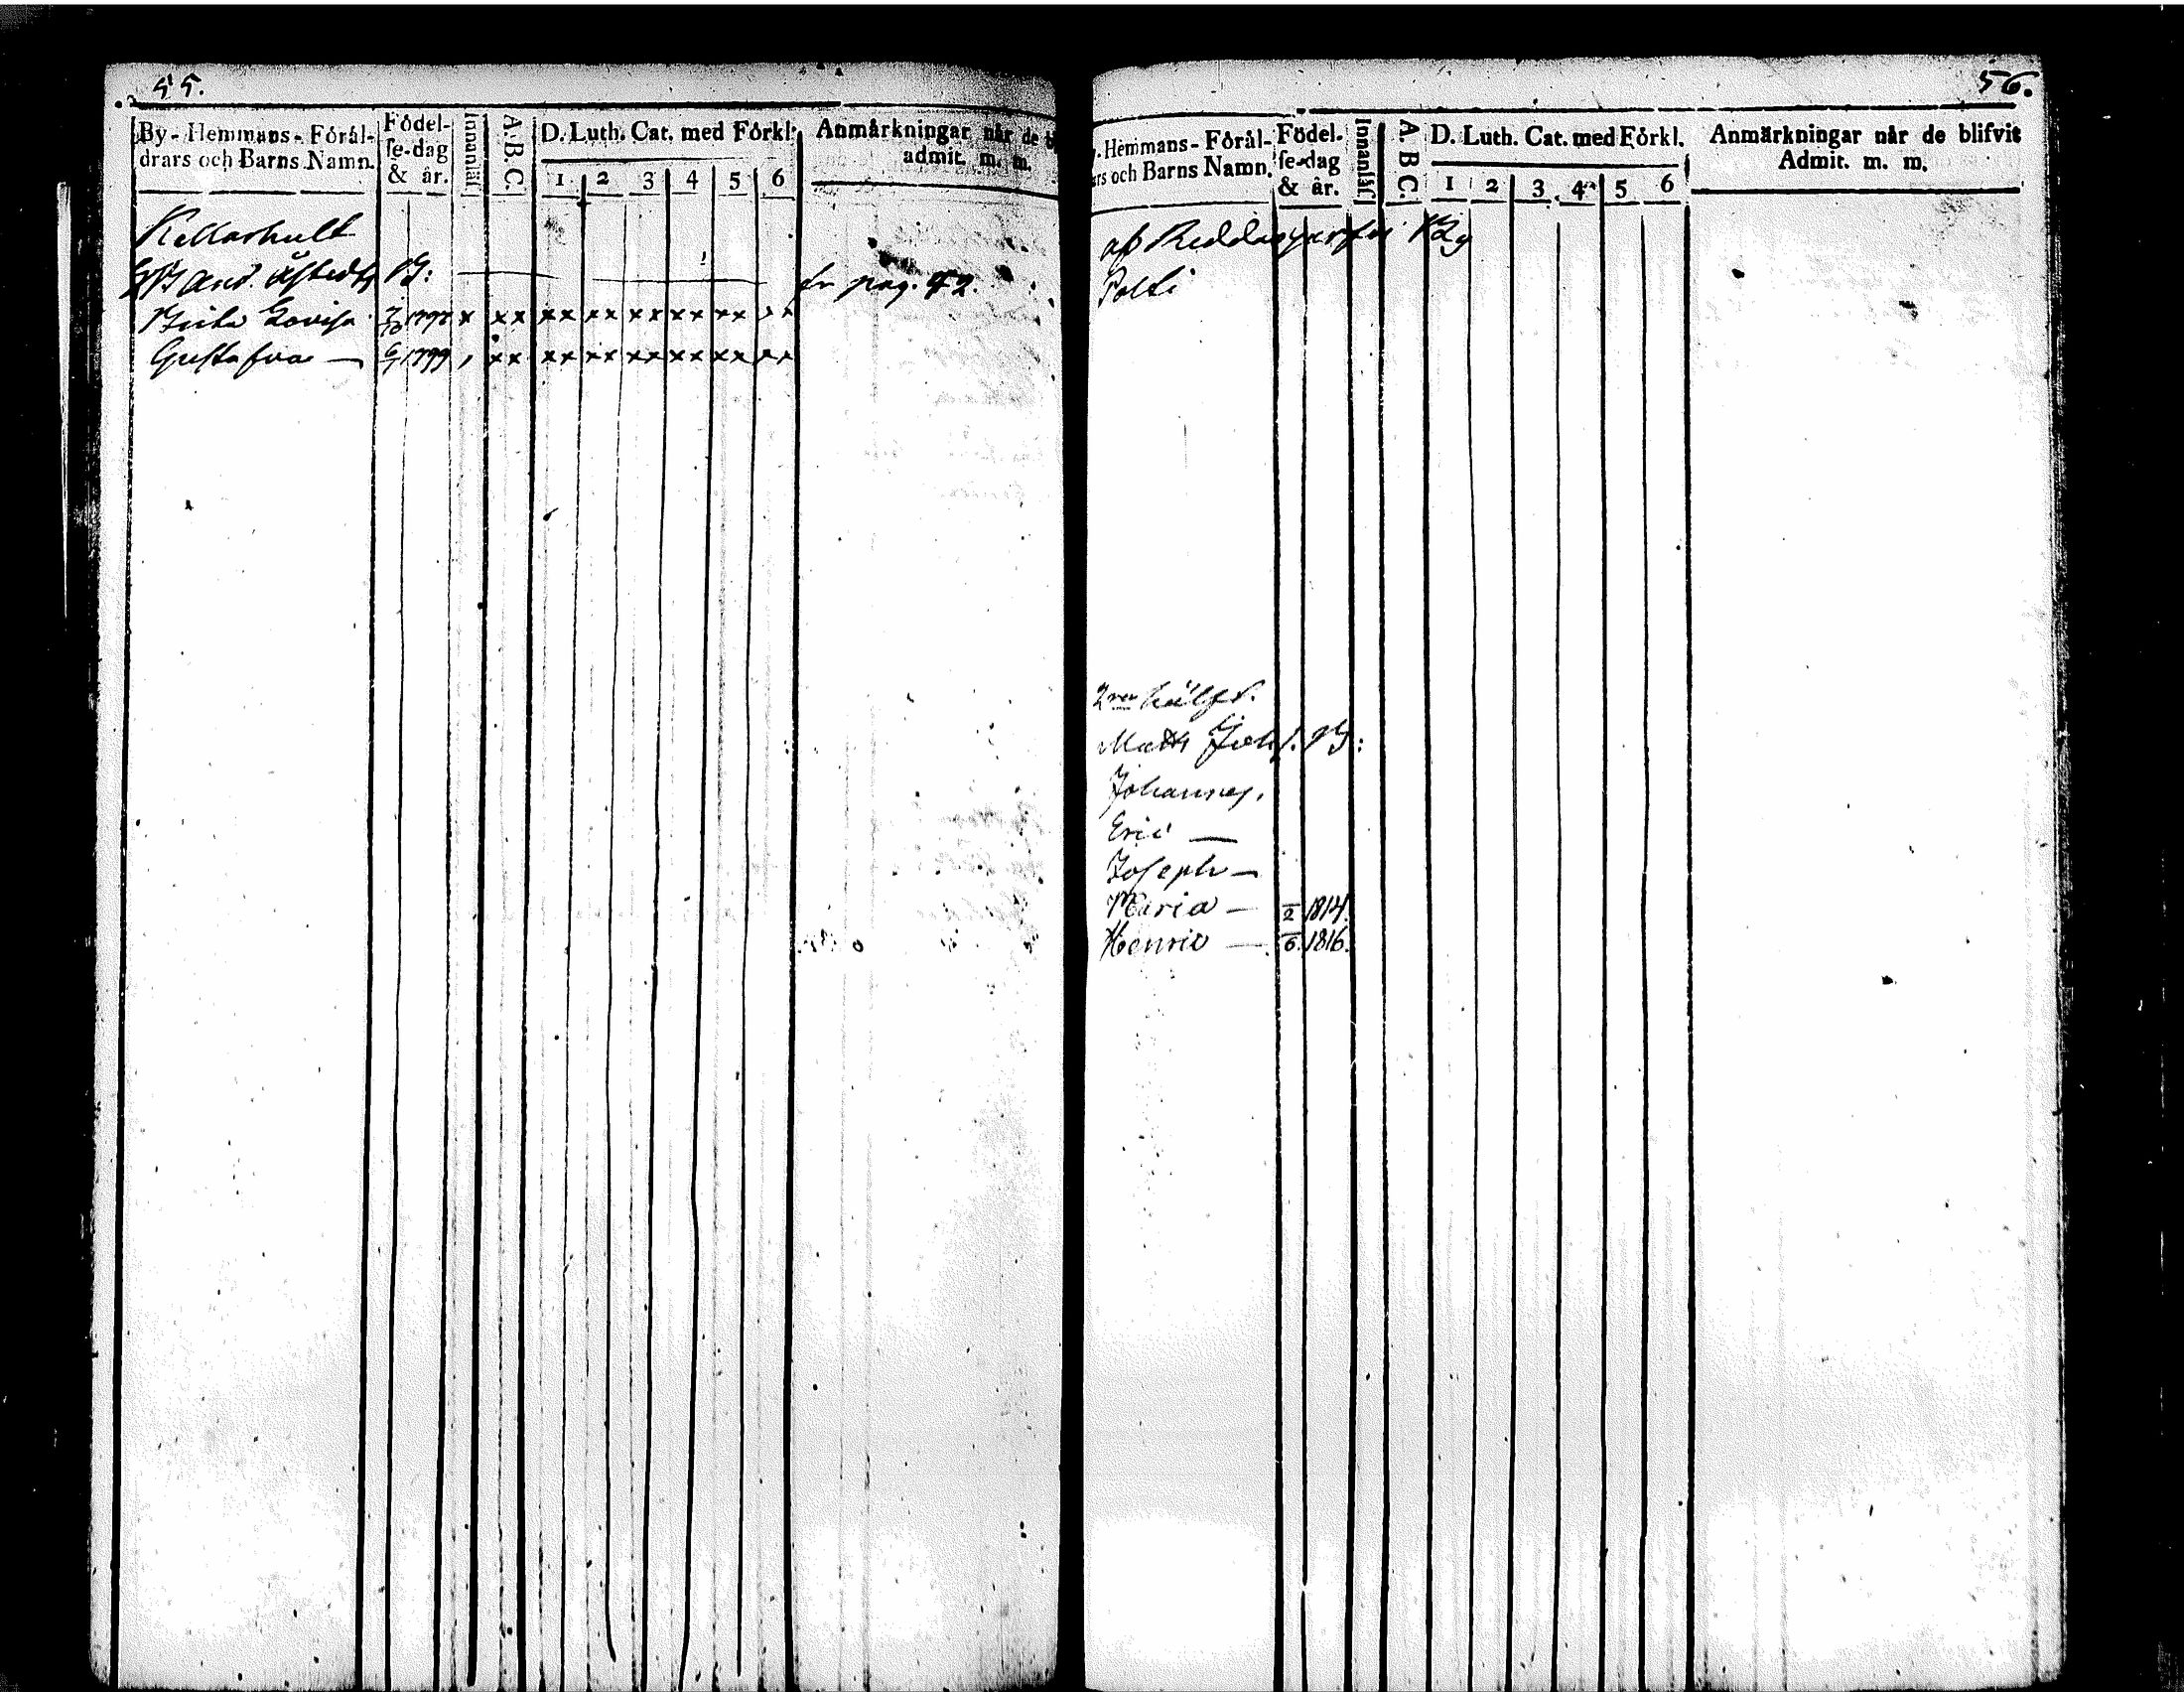 55.
By-Hemmans-Förål-
drars och Barns Namn.
Födel-
se-dag
& år.
Innanläs
A.B.C.
D. Luth. Cat. med Förkl.
1 2 3 4 5 6
Anmårkningar når de b
admit. m. m.
Kellarhult
And.
fr pag. 42.
Lovisa x xx xx xx xx xx xx
Gustafva — 1799 xx xx xx xx xx xx xx
56.
Hemmans-Förål-
rs och Barns Namn.
Födel-
se-dag
& år.
Innanläs
A.B.C.
D. Luth. Cat. med Förkl.
1 2 3 4 5 6
Anmärkningar når de blifvit
Admit. m. m.
af
Polti
Matts
Johannes.
Eric —
Joseph —
Maria — 2 1814.
Henric — 6. 1816.